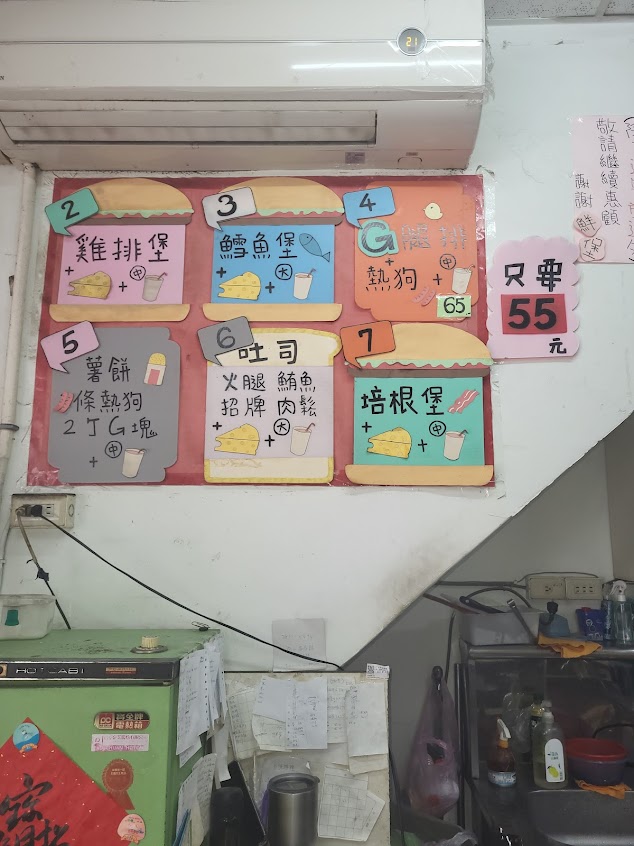 21
敬請繼續惠顧
謝謝
鮮
2
雞排堡
+
+
中
3
鱈魚堡
+
+
大
4
G腿排
+
熱狗
+
中
65
只要
55
元
5
薯餅
條熱狗
2丁G塊
+
中
6
吐司
火腿 鮪魚
招牌 肉鬆
+
+
大
7
培根堡
+
+
中
HOTCABI
黃金牌
電熱箱